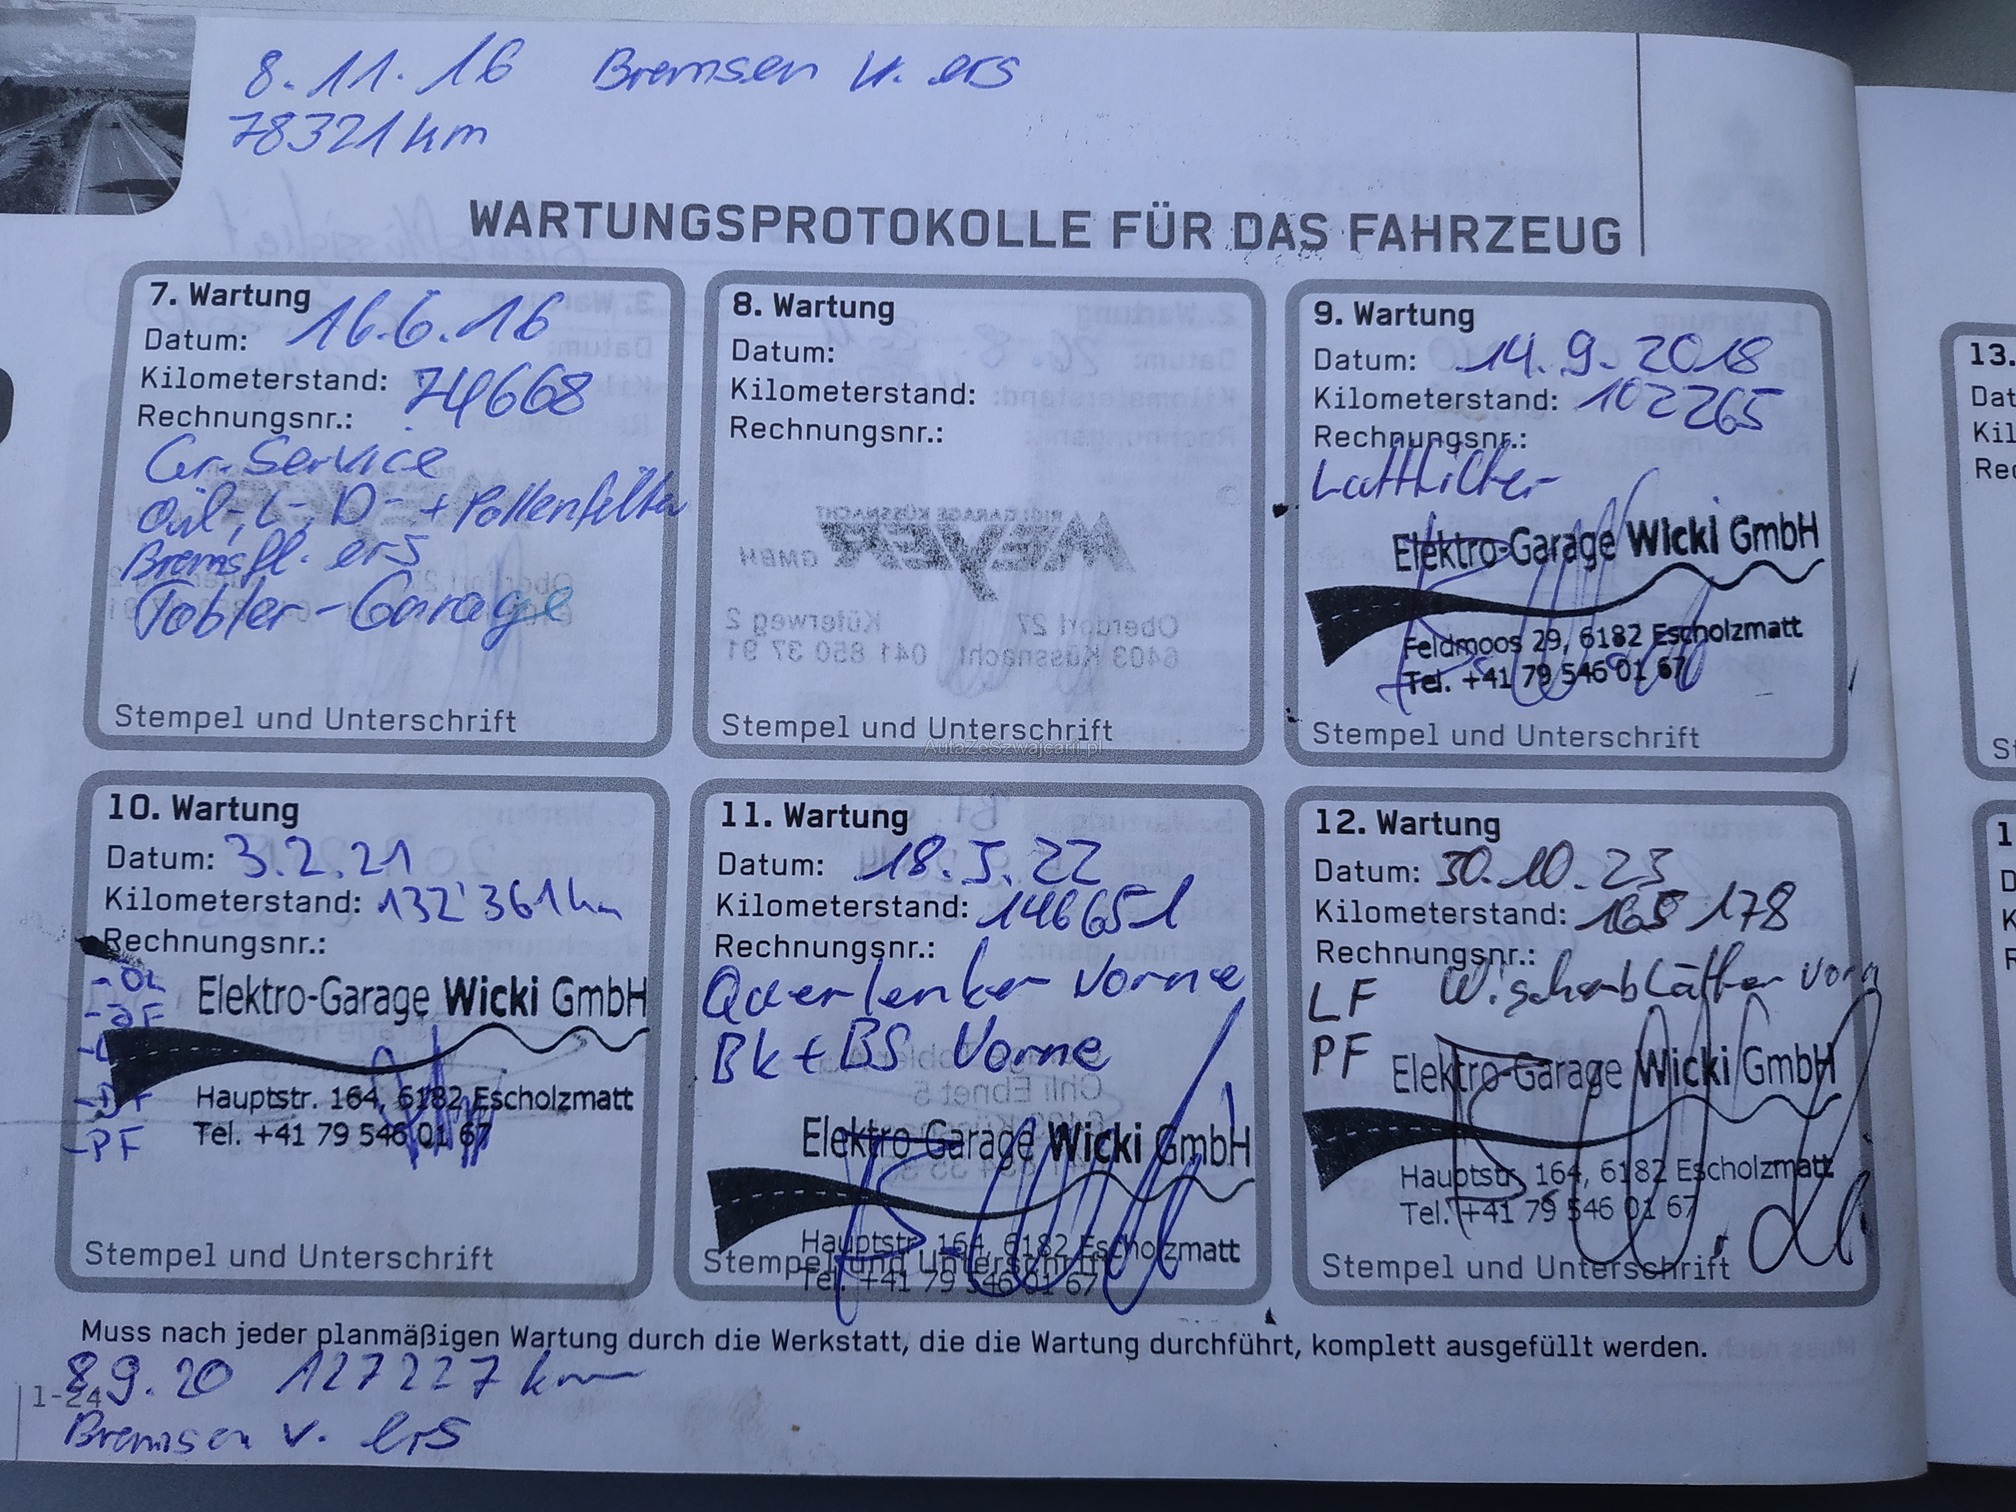 8.11.16 Bremsen v. ers
78321 km
WARTUNGSPROTOKOLLE FÜR DAS FAHRZEUG
7. Wartung
Datum: 16.6.16
Kilometerstand: 74668
Rechnungsnr.:
Gr. Service
Öil-, L-, D- + Pollenfilter
Bremsfl. ers
Tobler-Garage
Stempel und Unterschrift
8. Wartung
Datum:
Kilometerstand:
Rechnungsnr.:
Stempel und Unterschrift
AutaZeSzwajcarii.pl
9. Wartung
Datum: 14.9.2018
Kilometerstand: 102265
Rechnungsnr.:
Luftfilter
Elektro-Garage Wicki GmbH
Feldmoos 29, 6182 Escholzmatt
Tel. +41 79 546 01 67
Stempel und Unterschrift
10. Wartung
Datum: 3.2.21
Kilometerstand: 132'361 km
Rechnungsnr.:
- ÖL
- ÖF
- PF
Elektro-Garage Wicki GmbH
Hauptstr. 164, 6182 Escholzmatt
Tel. +41 79 546 01 67
Stempel und Unterschrift
11. Wartung
Datum: 18.5.22
Kilometerstand: 146651
Rechnungsnr.:
Querlenker Vorne
Bk + BS Vorne
Elektro-Garage Wicki GmbH
Hauptstr. 164, 6182 Escholzmatt
Stempel und Unterschrift
Tel. +41 79 546 01 67
12. Wartung
Datum: 30.10.23
Kilometerstand: 165 178
Rechnungsnr.:
LF Wischerblätter vorn
PF
Elektro-Garage Wicki GmbH
Hauptstr. 164, 6182 Escholzmatt
Tel. +41 79 546 01 67
Stempel und Unterschrift
Muss nach jeder planmäßigen Wartung durch die Werkstatt, die die Wartung durchführt, komplett ausgefüllt werden.
8.9.20 127227 km
1-24
Bremsen v. ers
13.